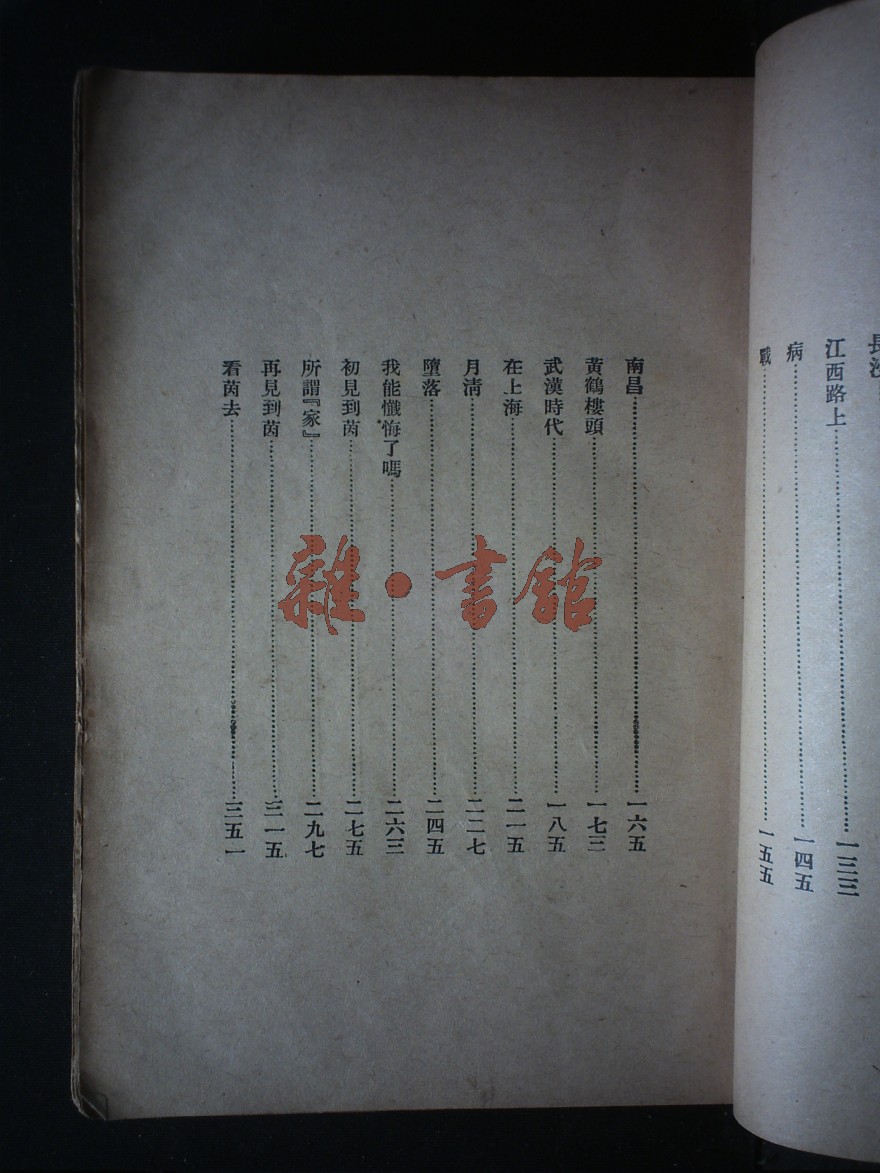 長沙
江西路上………一三三
病………一四五
戰………一五五
南昌………一六五
黃鶴樓頭………一七三
武漢時代………一八五
在上海………二一五
月清………二二七
墮落………二四五
我能懺悔了嗎………二六三
初見到茵………二七五
所謂『家』………二九七
再見到茵………三一五
看茵去………三五一
雜·書館